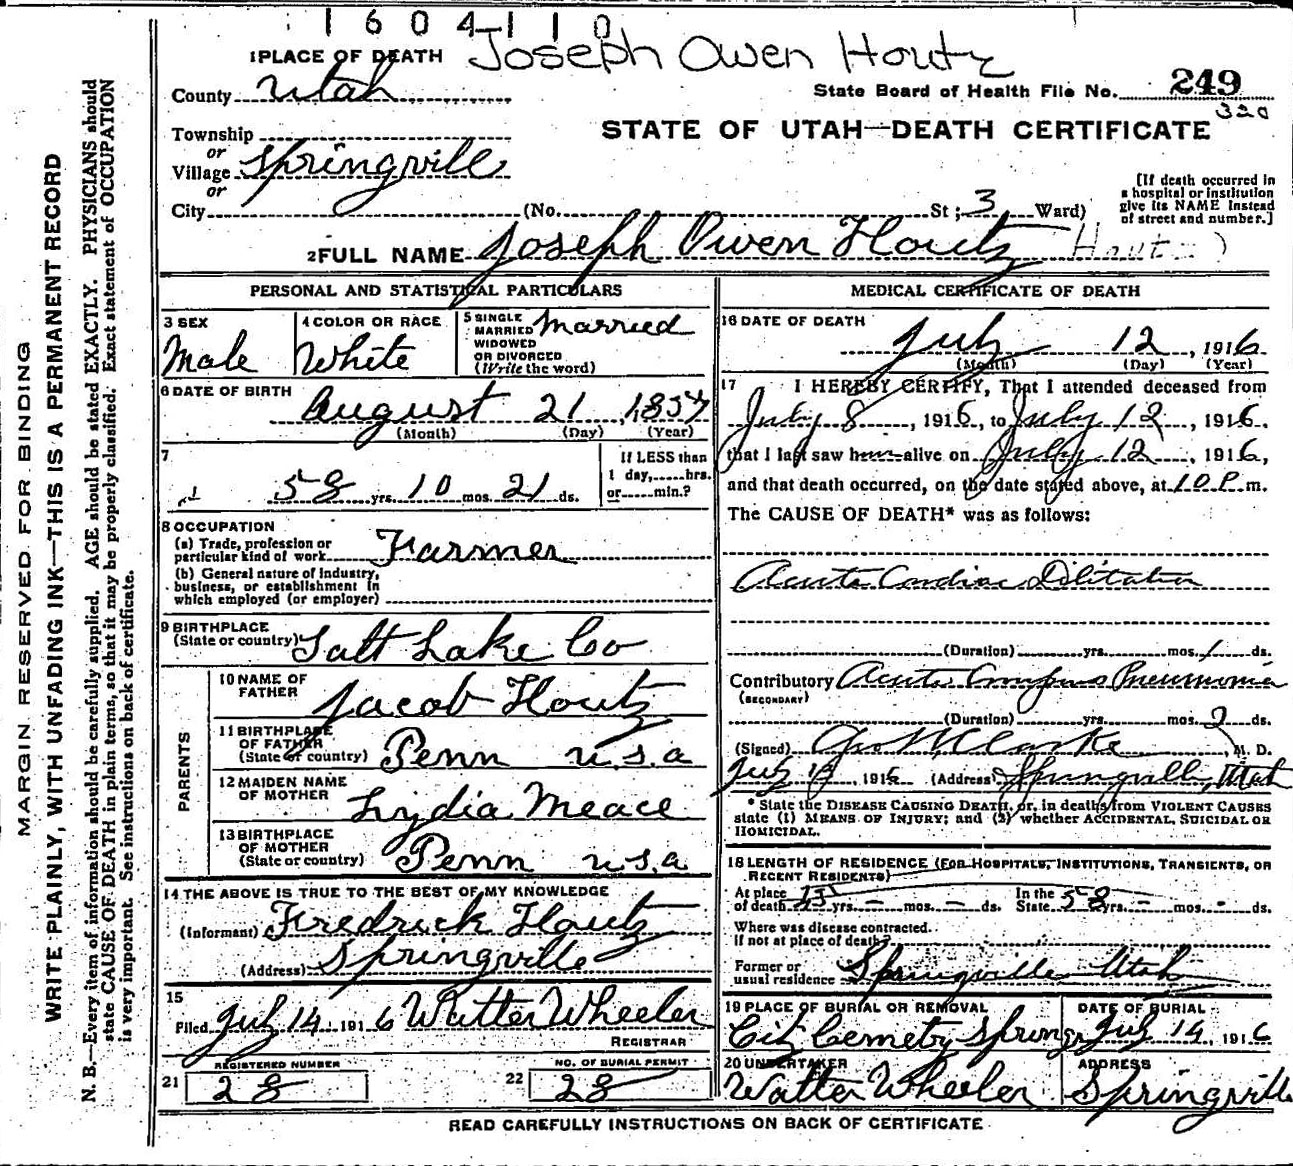 1604110
1 PLACE OF DEATH Joseph Owen Houtz
County Utah
State Board of Health File No. 249
320
Township
or
Village Springvill
or
City (No. St ; 3 Ward)
STATE OF UTAH—DEATH CERTIFICATE
[If death occurred in
a hospital or institution
give its NAME instead
of street and number.]
2 FULL NAME Joseph Owen Houtz
PERSONAL AND STATISTICAL PARTICULARS
3 SEX
Male
4 COLOR OR RACE
White
5 SINGLE
MARRIED
WIDOWED
OR DIVORCED
(Write the word)
Married
6 DATE OF BIRTH
August 21, 1857
(Month) (Day) (Year)
7
58 yrs. 10 mos. 21 ds.
If LESS than
1 day, hrs.
or min.?
8 OCCUPATION
(a) Trade, profession or
particular kind of work Farmer
(b) General nature of industry,
business, or establishment in
which employed (or employer)
9 BIRTHPLACE
(State or country) Salt Lake Co
PARENTS
10 NAME OF
FATHER Jacob Houtz
11 BIRTHPLACE
OF FATHER
(State or country) Penn u.s.a
12 MAIDEN NAME
OF MOTHER Lydia Meace
13 BIRTHPLACE
OF MOTHER
(State or country) Penn u.s.a
14 THE ABOVE IS TRUE TO THE BEST OF MY KNOWLEDGE
(Informant) Fredrick Houtz
(Address) Springville
15
Filed July 14 1916 Walter Wheeler
REGISTRAR
REGISTERED NUMBER
21 28
NO. OF BURIAL PERMIT
22 28
MEDICAL CERTIFICATE OF DEATH
16 DATE OF DEATH
July 12, 1916
(Month) (Day) (Year)
17 I HEREBY CERTIFY, That I attended deceased from
July 8, 1916, to July 12, 1916.
that I last saw him alive on July 12, 1916,
and that death occurred, on the date stated above, at 10 P. m.
The CAUSE OF DEATH* was as follows:
Acute Cardiac Dilitation
(Duration) yrs. mos. 1 ds.
Contributory Acute Croupus Pneumonia
(SECONDARY)
(Duration) yrs. mos. ds.
(Signed) Geo M Clarke M. D.
July 13, 1916 (Address) Springville, Utah
* State the DISEASE CAUSING DEATH, or, in deaths from VIOLENT CAUSES
state (1) MEANS OF INJURY; and (2) whether ACCIDENTAL, SUICIDAL OR
HOMICIDAL.
18 LENGTH OF RESIDENCE (FOR HOSPITALS, INSTITUTIONS, TRANSIENTS, OR
RECENT RESIDENTS)
At place
of death yrs. - mos. - ds.
In the
State 58 yrs. - mos. - ds.
Where was disease contracted.
if not at place of death?
Former or
usual residence Springville Utah
19 PLACE OF BURIAL OR REMOVAL
City Cemetry Spring
DATE OF BURIAL
July 14, 1916
20 UNDERTAKER
Walter Wheeler
ADDRESS
Springville
READ CAREFULLY INSTRUCTIONS ON BACK OF CERTIFICATE
MARGIN RESERVED FOR BINDING
WRITE PLAINLY, WITH UNFADING INK—THIS IS A PERMANENT RECORD
N. B.—Every item of information should be carefully supplied. AGE should be stated EXACTLY. PHYSICIANS should
state CAUSE OF DEATH in plain terms, so that it may be properly classified. Exact statement of OCCUPATION
is very important. See instructions on back of certificate.